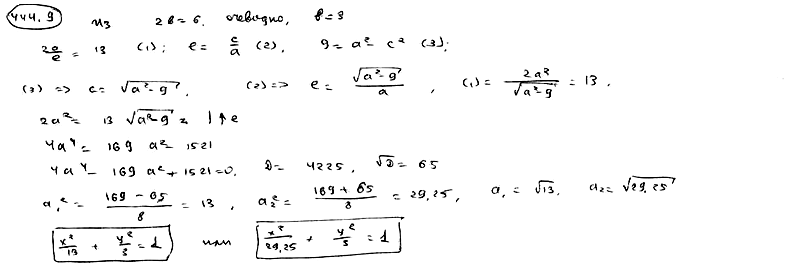 444.9 из 2b=6, очевидно, b=3
2a/e = 13 (1); e = c/a (2), 9 = a² - c² (3);
(3) => c = √(a²-9), (2) => e = √(a²-9)/a, (1) = 2a²/√(a²-9) = 13.
2a² = 13 √(a²-9)
4a⁴ = 169 a² - 1521
4a⁴ - 169 a² + 1521 = 0, D = 4225, √D = 65
a₁² = (169 - 65)/8 = 13, a₂² = (169 + 65)/8 = 29,25, a₁ = √13, a₂ = √29,25
x²/13 + y²/3 = 1 или x²/29,25 + y²/3 = 1